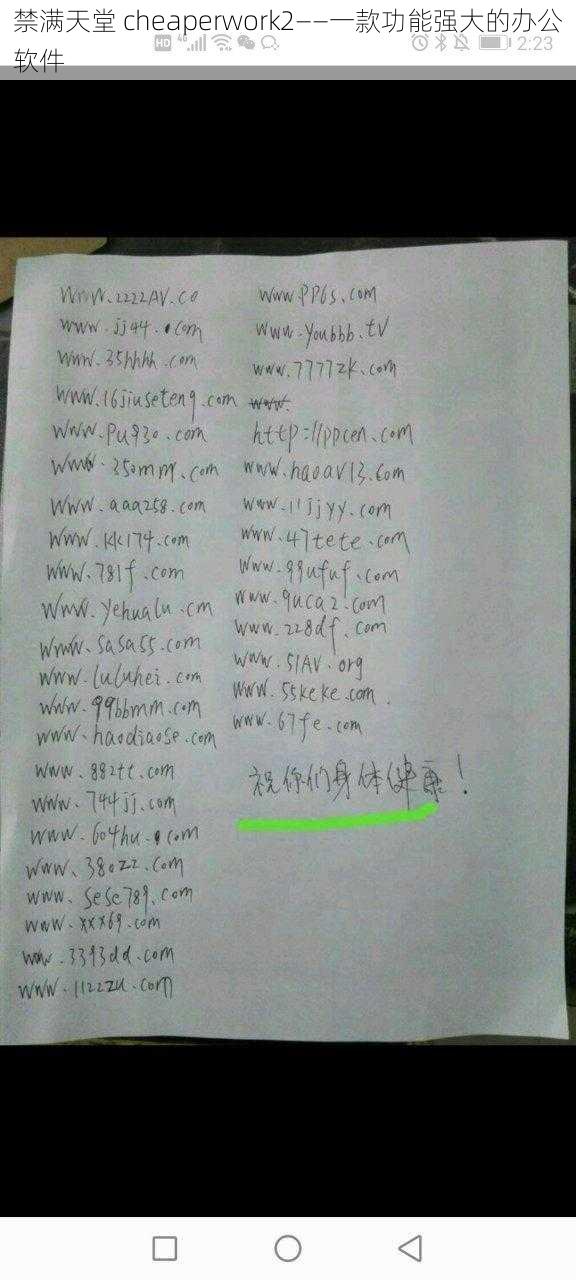 禁满天堂 cheaperwork2——一款功能强大的办公
软件
HD 4G 2:23
www.2222AV.co
www.jj44.com
www.35hhhh.com
www.16jiuseteng.com
www.pu930.com
www.350mm.com
www.aaa258.com
www.kk174.com
www.781f.com
www.yehualu.cm
www.sasa55.com
www.luluhei.com
www.99bbmm.com
www.haodiaose.com
www.882tt.com
www.744jj.com
www.604hu.com
www.380zz.com
www.sese789.com
www.xxx69.com
www.3393dd.com
www.1122zu.com
www.PP6s.com
www.youbbb.tv
www.7777zk.com
www.
http://ppcen.com
www.haoav13.com
www.11jjyy.com
www.47tete.com
www.99ufuf.com
www.9uca2.com
www.228df.com
www.51AV.org
www.55keke.com.
www.67fe.com
祝你们身体健康!